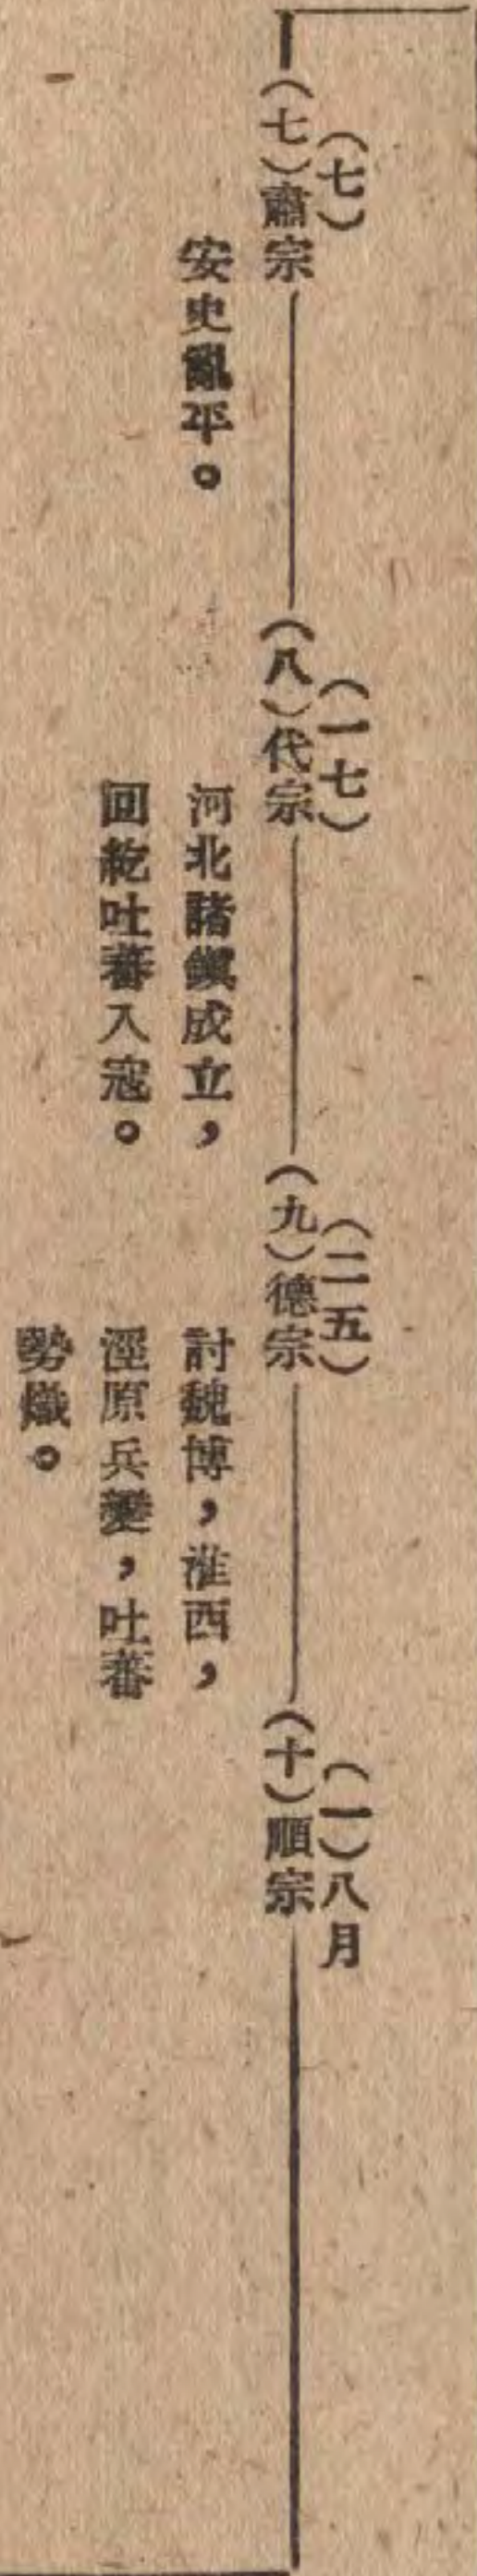 （七）
（七）肅宗
安史亂平。
（一七）
（八）代宗
河北諸鎭成立，
回紇吐蕃入寇。
（二五）
（九）德宗
討魏博，淮西，
涇原兵變，吐蕃
勢熾。
（一）八月
（十）順宗